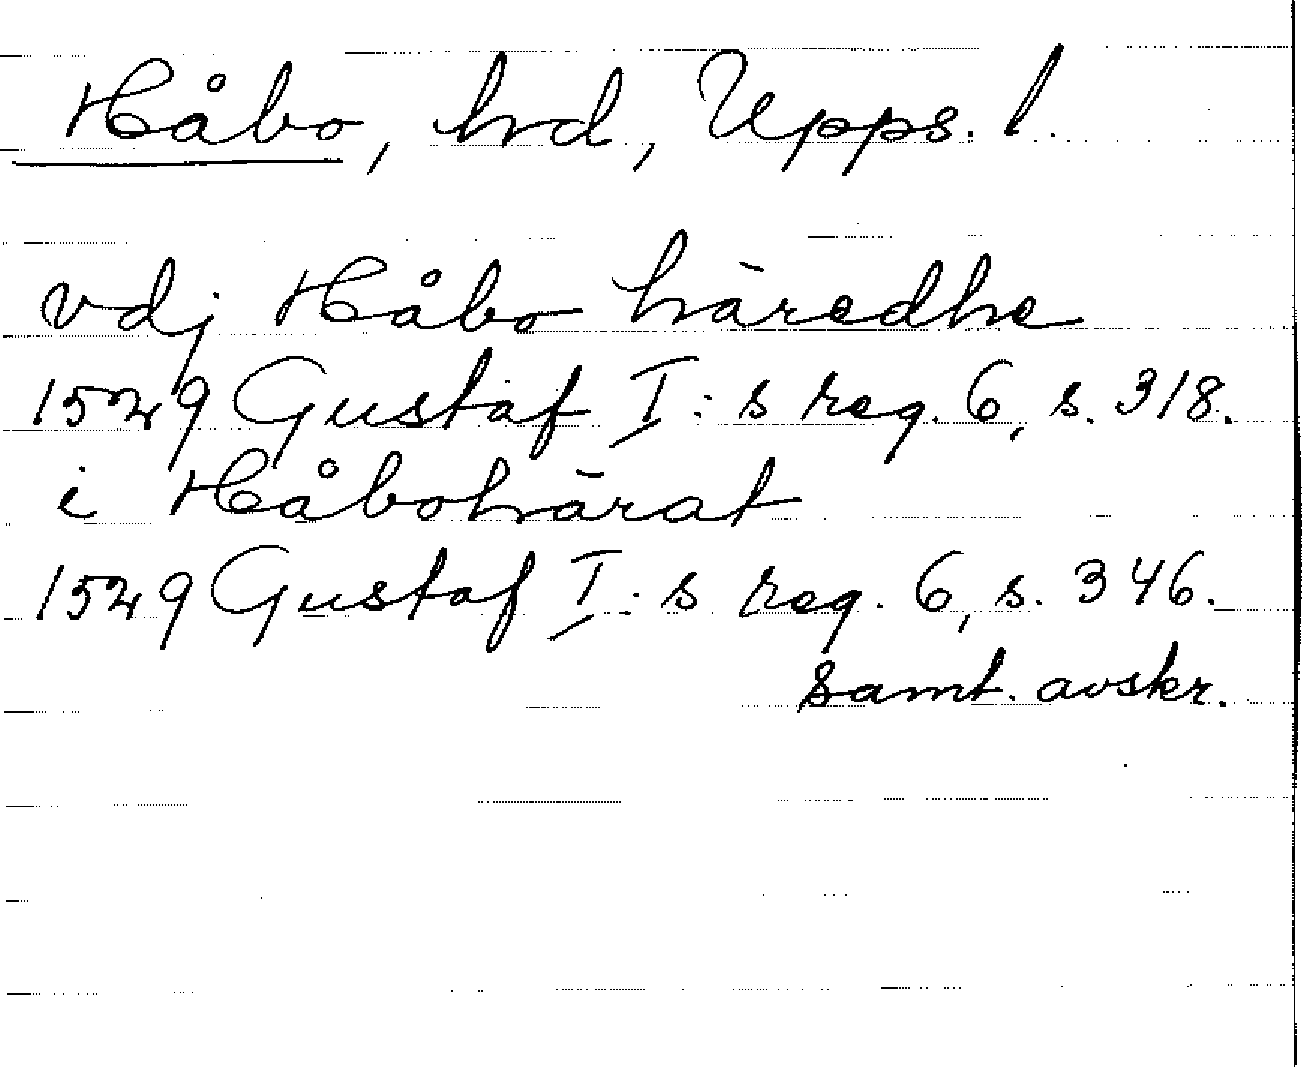 Håbo, hrd, Upps. l.
vdj Håbo häredhe
1529 Gustaf I:s reg. 6, s. 318.
i Håbohärat
1529 Gustaf I:s reg. 6, s. 346.
samt. avskr.